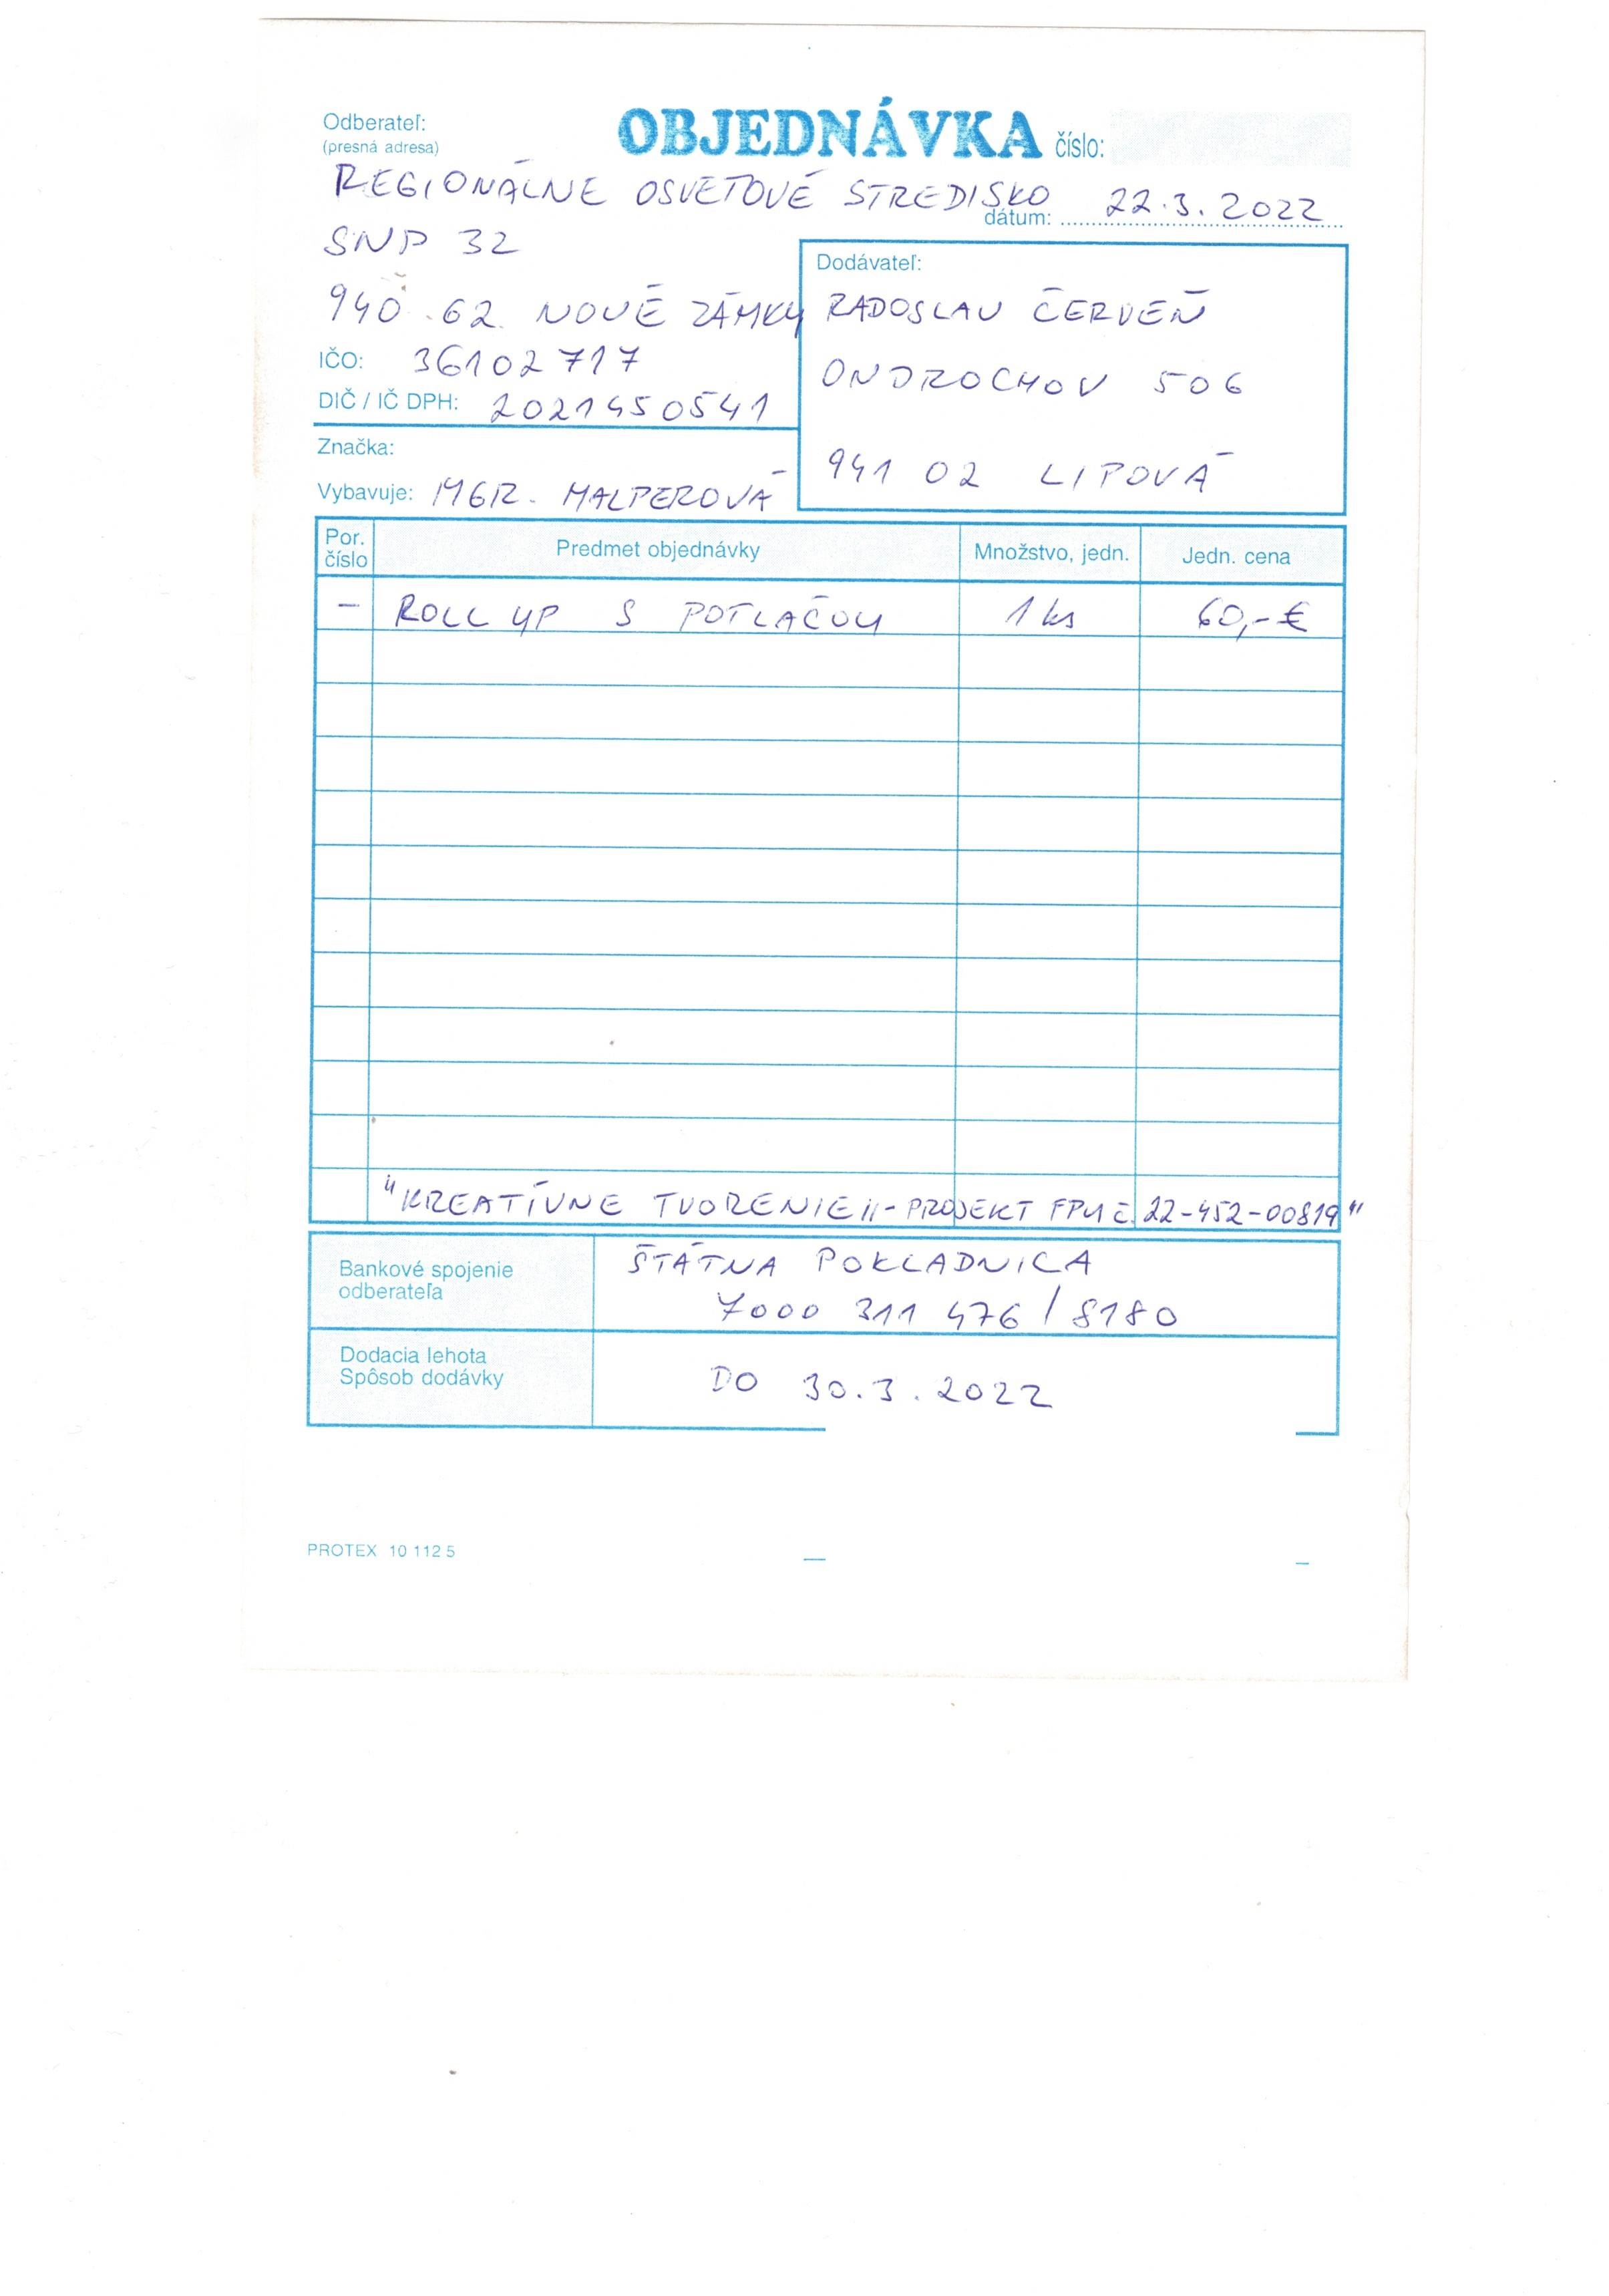 Odberateľ:
(presná adresa)
OBJEDNÁVKA číslo:
REGIONÁLNE OSVETOVÉ STREDISKO
dátum: 22.3.2022
SNP 32
940 62 NOVÉ ZÁMKY
IČO: 36102717
DIČ / IČ DPH: 2021450541
Značka:
Vybavuje: MGR. MALPEROVÁ
Dodávateľ:
RADOSLAV ČERVEŇ
ONDROCHOV 506
941 02 LIPOVÁ
Por. číslo Predmet objednávky Množstvo, jedn. Jedn. cena
– ROLL UP S POTLAČOU 1 ks 60,-€
"KREATÍVNE TVORENIE II - PROJEKT FPU Č. 22-452-00819"
Bankové spojenie
odberateľa
ŠTÁTNA POKLADNICA
7000 311 476 / 8180
Dodacia lehota
Spôsob dodávky
DO 30.3.2022
PROTEX 10 112 5